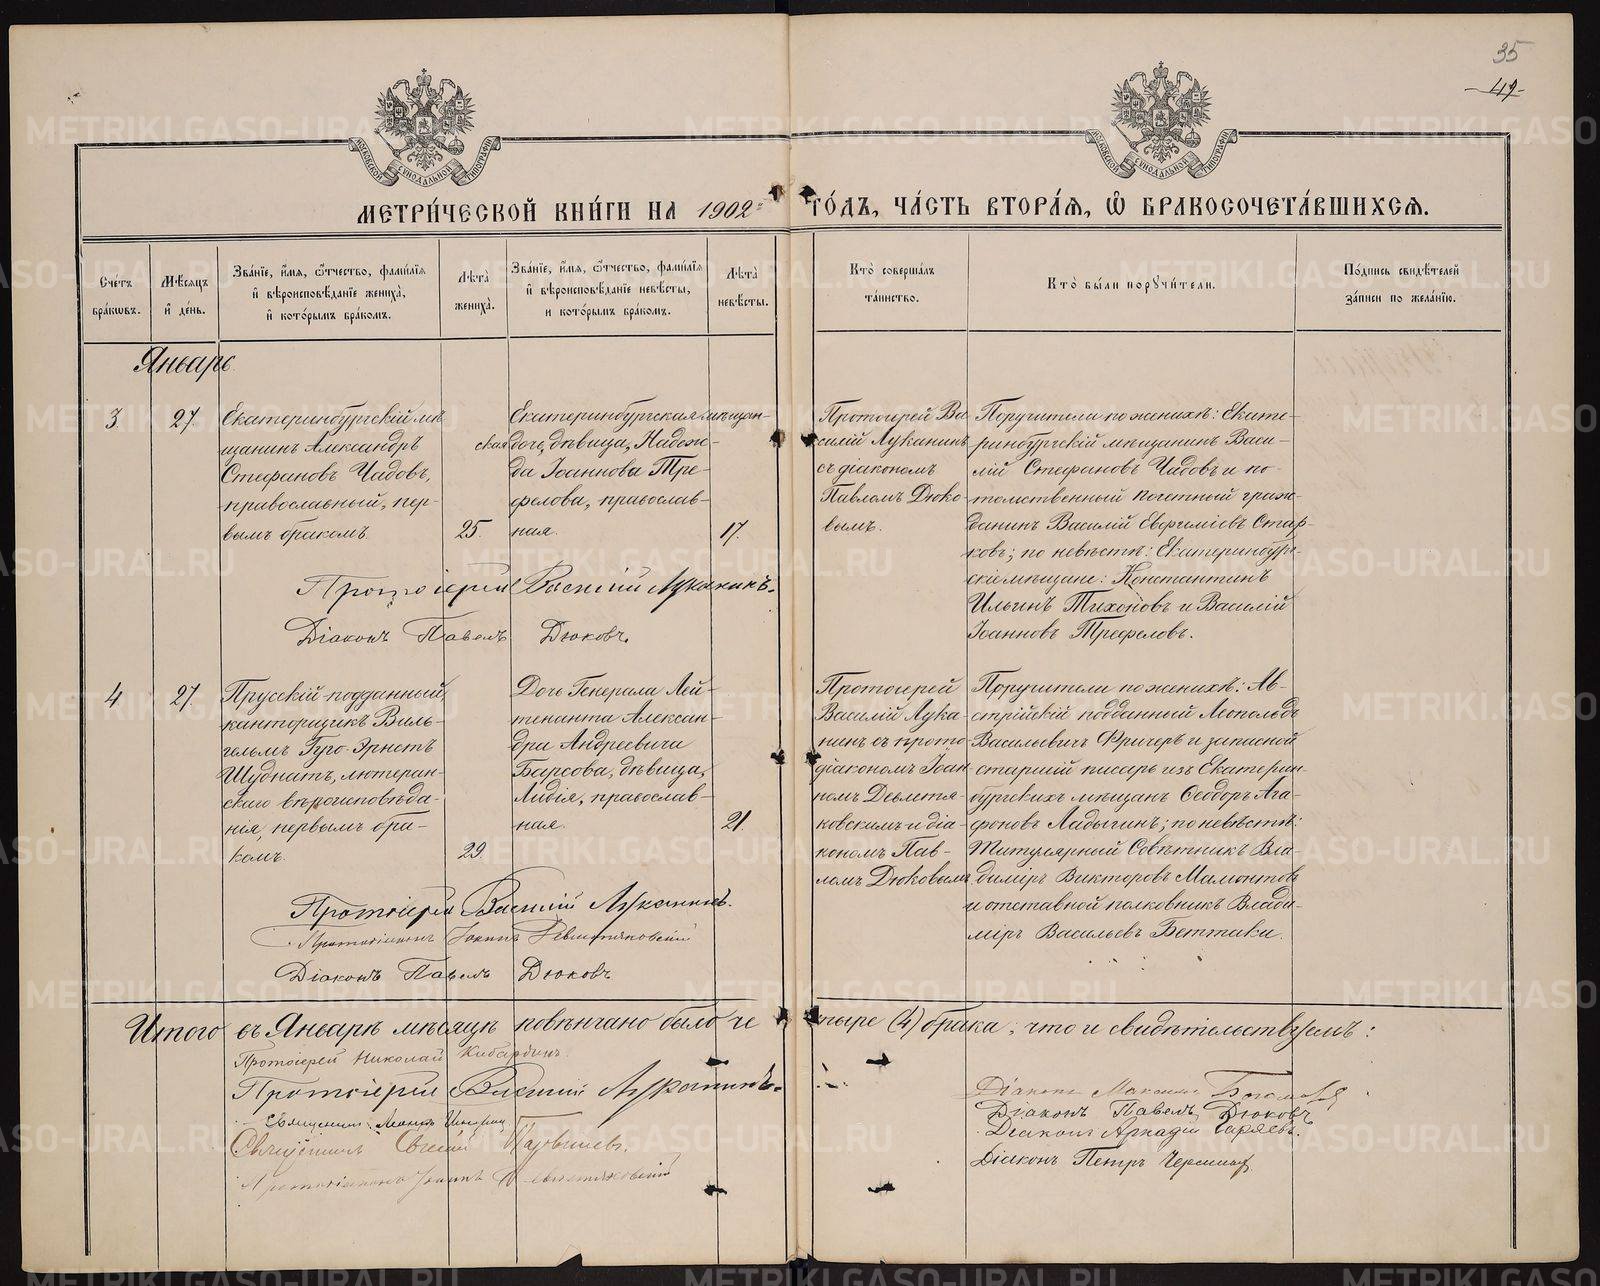 35
49
МОСКОВСКОЙ СѴНОДАЛЬНОЙ ТИПОГРАФІИ
МОСКОВСКОЙ СѴНОДАЛЬНОЙ ТИПОГРАФІИ
МЕТРИ́ЧЕСКОЙ КНИ́ГИ НА 1902 ГО́ДЪ, ЧА́СТЬ ВТОРА́Я, Ѽ БРАКОСОЧЕТА́ВШИХСЯ.
Сче́тъ бра́кѡвъ.
Мѣ́сяцъ и҆ де́нь.
Зва́нїе, и҆́мя, ѻ҆́тчество, фами́лїя и҆ вѣроисповѣ́данїе жениха̀, и҆ кото́рымъ бра́комъ.
Лѣ́та жениха̀.
Зва́нїе, и҆́мя, ѻ҆́тчество, фами́лїя и҆ вѣроисповѣ́данїе невѣ́сты, и кото́рымъ бра́комъ.
Лѣ́та невѣ́сты.
Кто̀ соверша́лъ та́инство.
Кто̀ бы́ли порꙋчи́тели.
По́дпись свидѣ́телей за́писи по жела́нїю.
Январь
3
27.
Екатеринбургскій мѣ
щанинъ Александръ
Стефановъ Чадовъ,
православный, пер-
вымъ бракомъ.
25.
Екатеринбургская мѣщан-
ская дочь, дѣвица, Надеж-
да Іоаннова Тре-
фелова, православ-
ная.
17.
Протоіерей Ва
силій Луканинъ
съ діакономъ
Павломъ Дюко-
вымъ.
Поручители по женихѣ: Екате-
ринбургскій мѣщанинъ Васи-
лій Стефановъ Чадовъ и по-
томственный почетный граж-
данинъ Василій Евфиміевъ Стар-
ковъ; по невѣстѣ: Екатеринбург-
скіе мѣщане: Константинъ
Ильинъ Тихоновъ и Василій
Іоанновъ Трефеловъ.
Протоіерей Василій Луканинъ.
Діаконъ Павелъ Дюковъ.
4
27.
Прусскій подданный,
канторщикъ Виль-
гельмъ Гуго-Эрнстъ
Шуднатъ, лютеран-
скаго вѣроисповѣда-
нія, первымъ бра-
комъ.
29.
Дочь Генерала Лей-
тенанта Алексан-
дра Андреевича
Барсова, дѣвица,
Лидія, православ-
ная.
21.
Протоіерей
Василій Лука
нинъ съ прото-
діакономъ Іоан
номъ Девлетя-
ковскимъ и діа-
кономъ Пав-
ломъ Дюковымъ
Поручители по женихѣ: Ав-
стрійскій подданный Леопольдъ
Васильевичъ Фричеръ и запасной
старшій писарь изъ Екатерин-
бургскихъ мѣщанъ Ѳеодоръ Ага-
фоновъ Ладыгинъ; по невѣстѣ:
Титулярный Совѣтникъ Вла-
диміръ Викторовъ Мамонтовъ
и отставной полковникъ Влади-
міръ Васильевъ Беттики.
Протоіерей Василій Луканинъ.
Протодіаконъ Іоаннъ Девлетяковскій
Діаконъ Павелъ Дюковъ
Итого въ Январѣ мѣсяцѣ повѣнчано было четыре (4) брака, что и свидѣтельствуемъ:
Протоіерей Николай Кибардинъ.
Протоіерей Василій Луканинъ.
Священникъ
Священникъ
Протодіаконъ Іоаннъ Девлетяковскій
Діаконъ
Діаконъ Павелъ Дюковъ
Діаконъ Аркадій Гаряевъ.
Діаконъ Петръ
METRIKI.GASO-URAL.RU